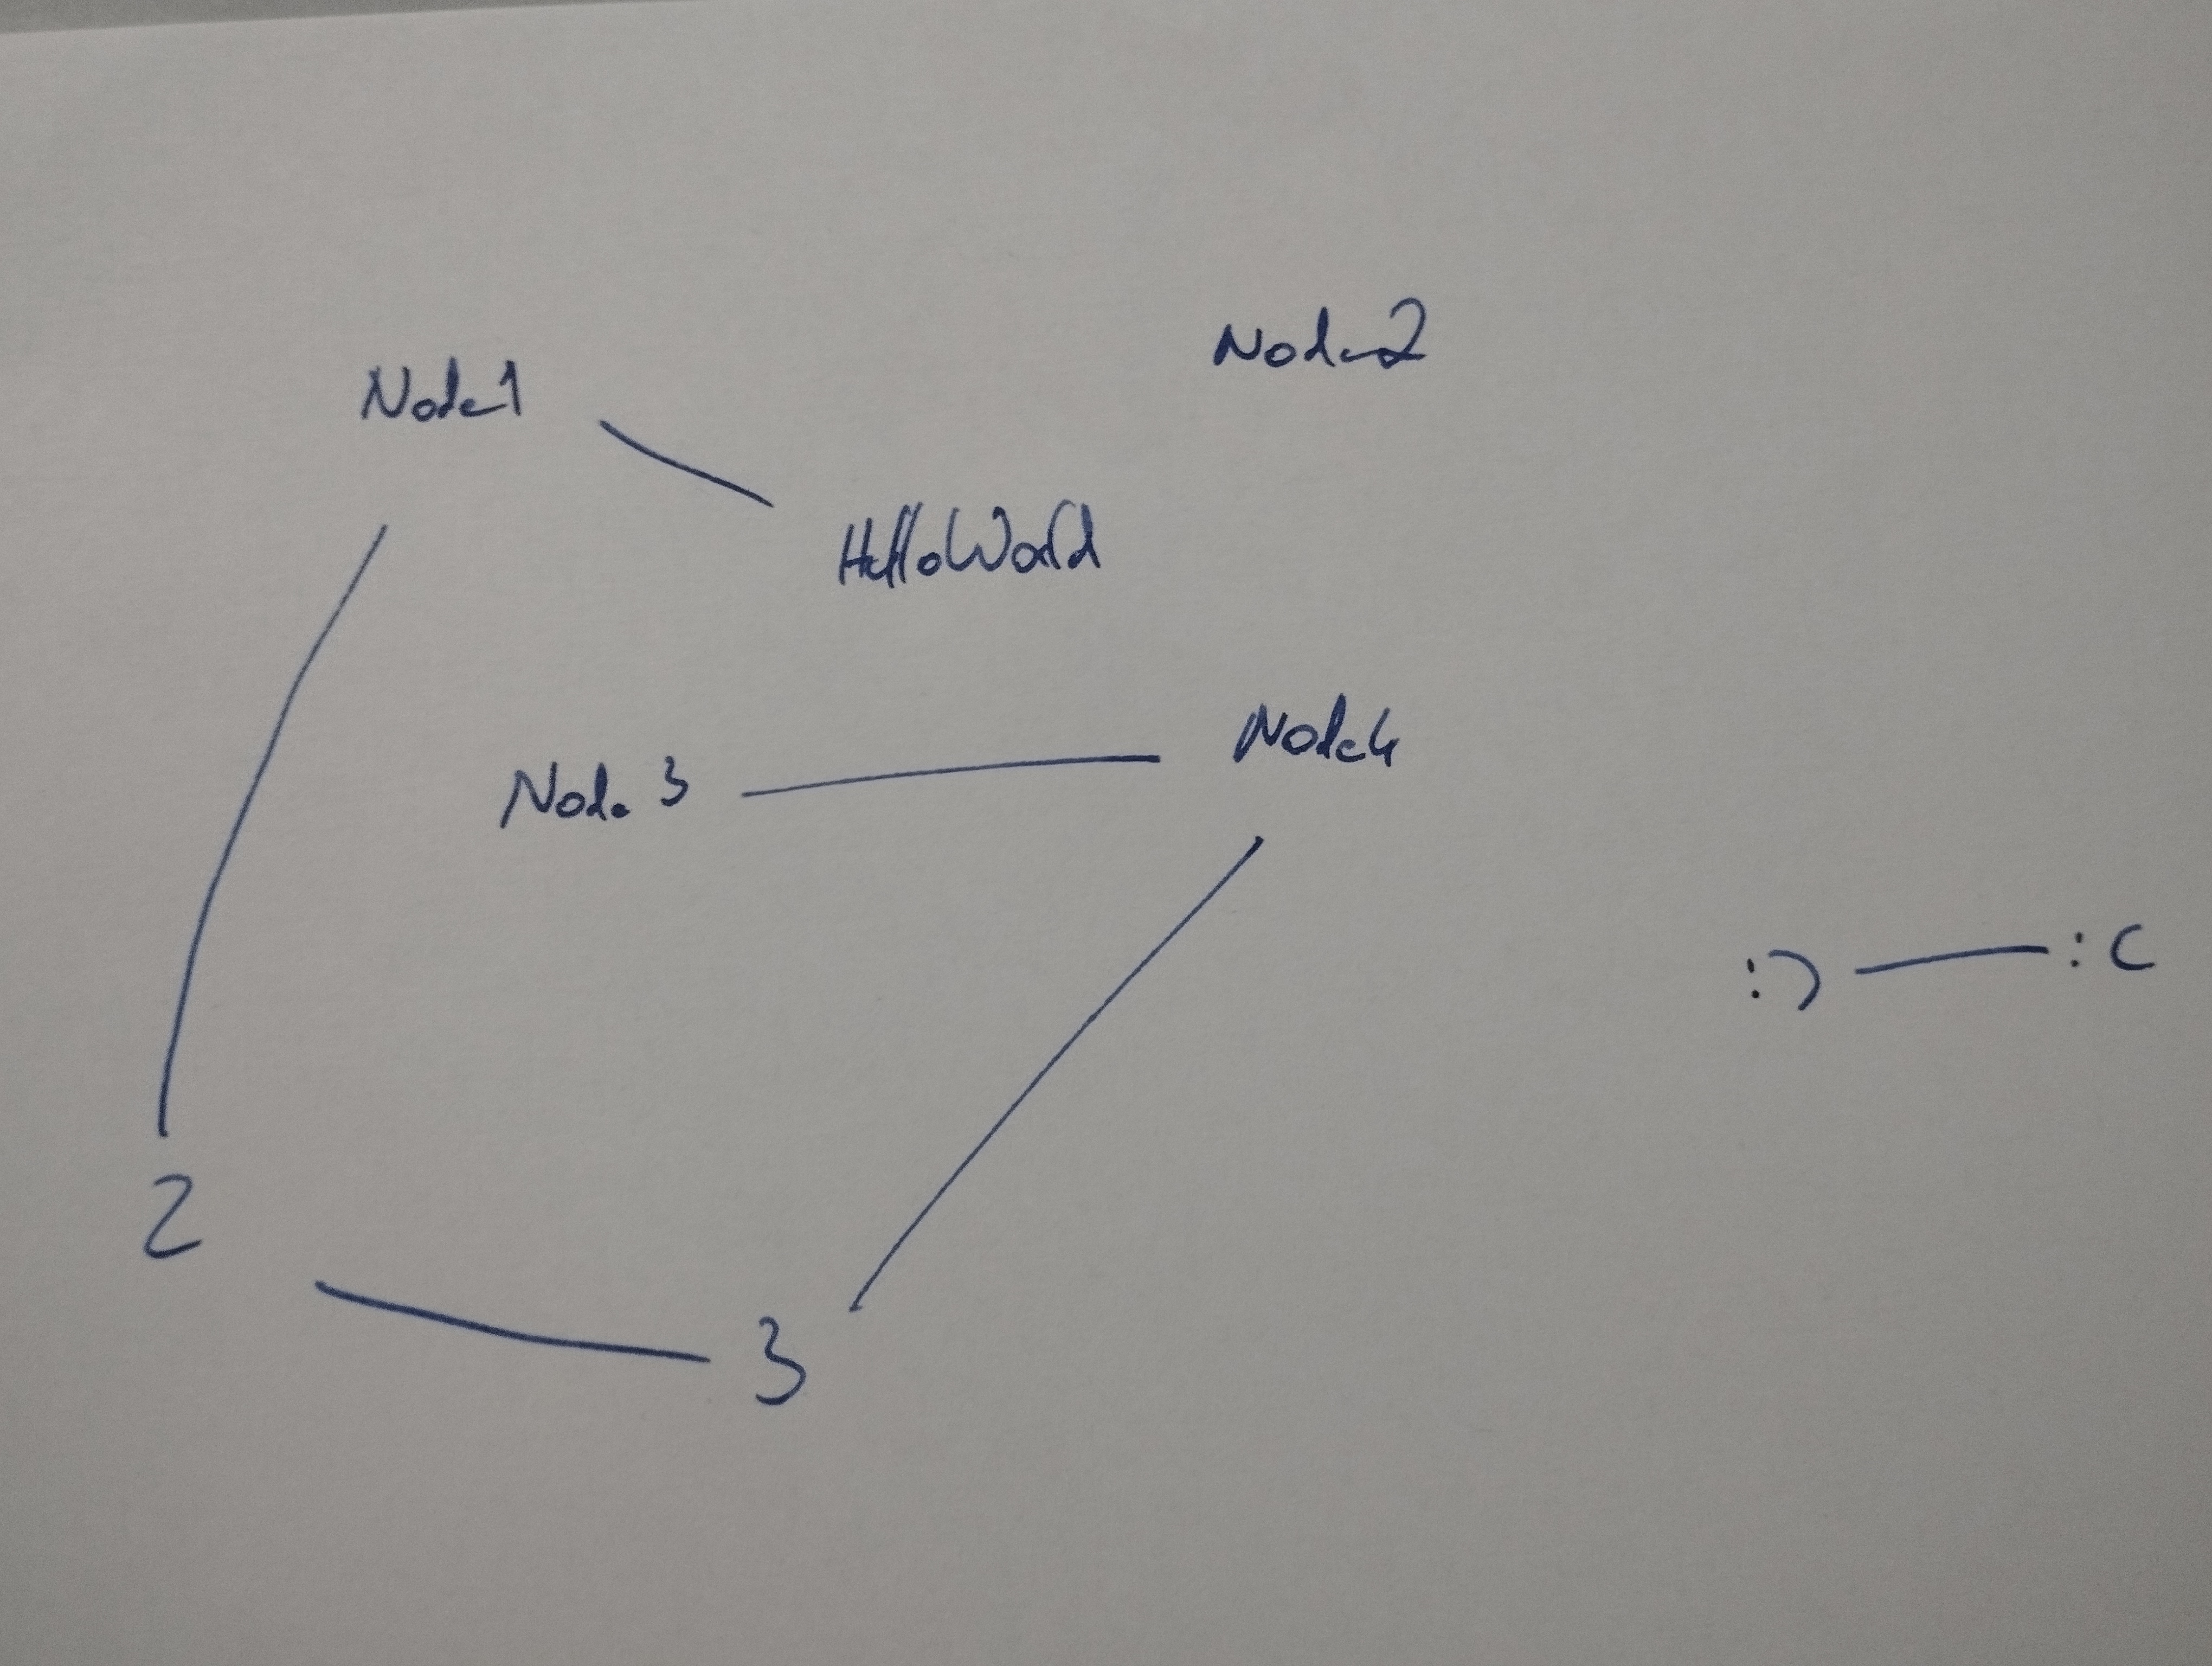 Node2
Node1
HelloWorld
Node4
Node 3
:) :C
2
3